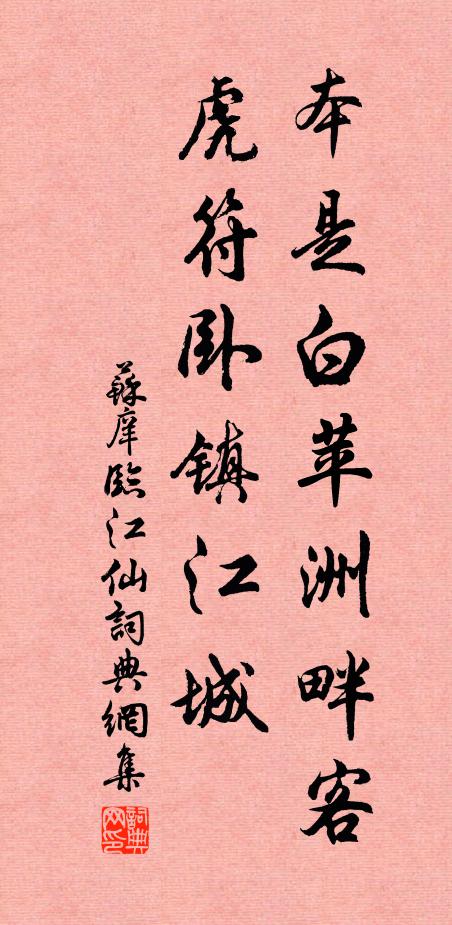 本是白苹洲畔客
虎符卧鎮江城
蘇庠臨江仙詞典網集
詞典网印